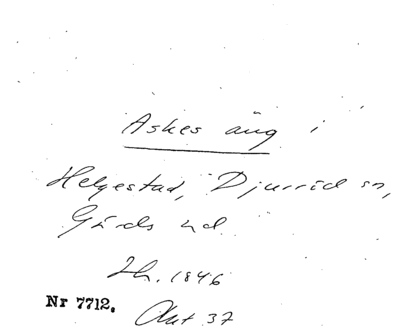 Askes äng i
Helgestad, Djurröd sn,
Gärds hd
Lh. 1846
Nr 7712. Akt 37